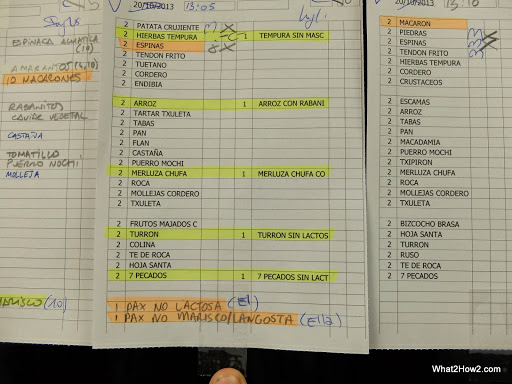 20/10/2013 13:05
2 PATATA CRUJIENTE
2 HIERBAS TEMPURA 1 TEMPURA SIN MASC
2 ESPINAS
2 TENDON FRITO
2 TUETANO
2 CORDERO
2 ENDIBIA
2 ARROZ 1 ARROZ CON RABANI
2 TARTAR TXULETA
2 TABAS
2 PAN
2 FLAN
2 CASTAÑA
2 PUERRO MOCHI
2 MERLUZA CHUFA 1 MERLUZA CHUFA CO
2 ROCA
2 MOLLEJAS CORDERO
2 TXULETA
2 FRUTOS MAJADOS C
2 TURRON 1 TURRON SIN LACTOS
2 COLINA
2 TE DE ROCA
2 HOJA SANTA
2 7 PECADOS 1 7 PECADOS SIN LACT
1 PAX NO LACTOSA (El)
1 PAX NO MARISCO/LANGOSTA (Ella)
(10)
AMARANTOS (4,10)
10 MACARONES
RABANITOS
CAVIAR VEGETAL
CASTAÑA
TOMATILLO
PUERRO MOCHI
MOLLEJA
MARISCO (10)
20/10/2013
2 MACARON
2 PIEDRAS
2 ESPINAS
2 TENDON FRITO
2 HIERBAS TEMPURA
2 CORDERO
2 CRUSTACEOS
2 ESCAMAS
2 ARROZ
2 TABAS
2 PAN
2 MACADAMIA
2 PUERRO MOCHI
2 TXIPIRON
2 MERLUZA CHUFA
2 ROCA
2 MOLLEJAS CORDERO
2 TXULETA
2 BIZCOCHO BRASA
2 HOJA SANTA
2 TURRON
2 RUSO
2 TE DE ROCA
2 7 PECADOS
What2How2.com